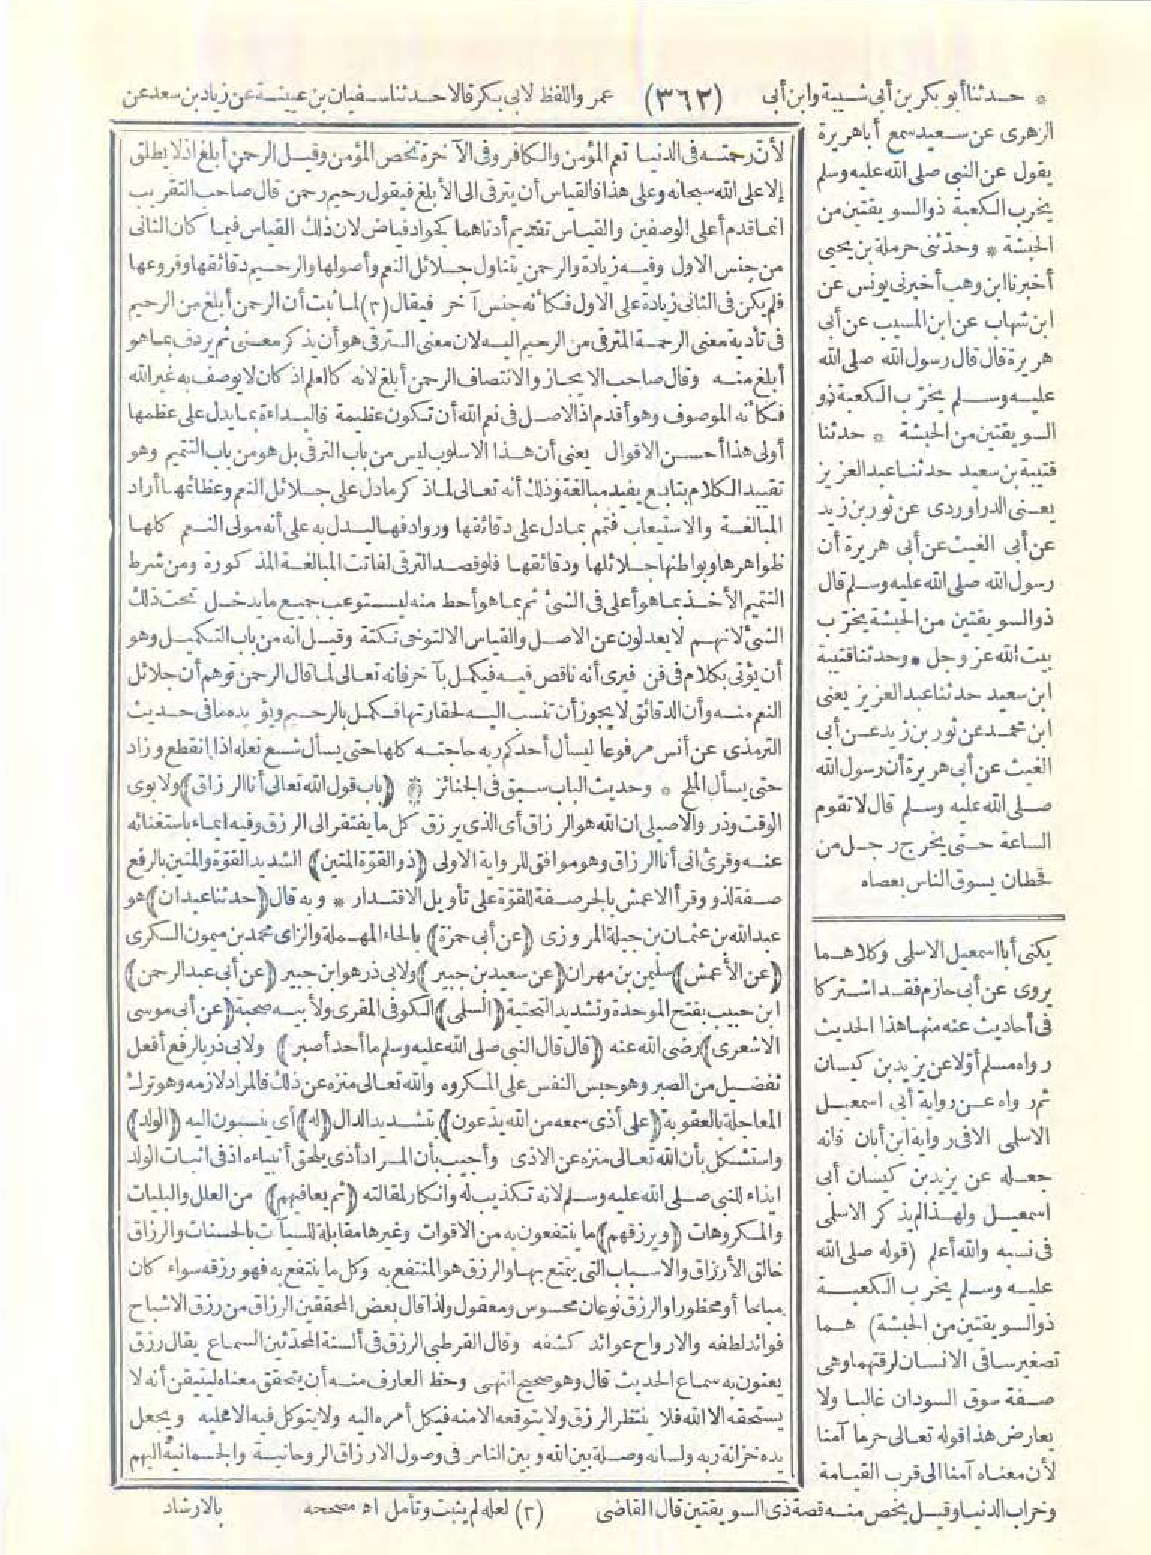 * حدثنا أبو بكر بن أبى شيبة وابن أبى
(٣٦٢)
عمر واللفظ لابى بكر قالا حدثنا سفيان بن عيينة عن زياد بن سعد عن
الزهرى عن سعيد سمع أبا هريرة
يقول عن النبى صلى الله عليه وسلم
يخرب الكعبة ذو السويقتين من
الحبشة * وحدثنى حرملة بن يحيى
أخبرنا ابن وهب أخبرنى يونس عن
ابن شهاب عن ابن المسيب عن أبى
هريرة قال قال رسول الله صلى الله
عليه وسلم يخرب الكعبة ذو
السويقتين من الحبشة * حدثنا
قتيبة بن سعيد حدثنا عبد العزيز
يعنى الدراوردى عن ثور بن زيد
عن أبى الغيث عن أبى هريرة أن
رسول الله صلى الله عليه وسلم قال
ذو السويقتين من الحبشة يخرب
بيت الله عز وجل * وحدثنا قتيبة
ابن سعيد حدثنا عبد العزيز يعنى
ابن محمد عن ثور بن زيد عن أبى
الغيث عن أبى هريرة أن رسول الله
صلى الله عليه وسلم قال لا تقوم
الساعة حتى يخرج رجل من
قحطان يسوق الناس بعصاه
يكنى أبا اسمعيل الاسلمى وكلاهما
يروى عن أبى حازم فقد اشتركا
فى أحاديث عنه منها هذا الحديث
رواه مسلم أولا عن يزيد بن كيسان
ثم رواه عن رواية أبى اسمعيل
الاسلمى الا فى رواية ابن أبان فانه
جعله عن يزيد بن كيسان أبى
اسمعيل ولهذا لم يذكر الاسلمى
فى نسبه والله أعلم (قوله صلى الله
عليه وسلم يخرب الكعبة
ذو السويقتين من الحبشة) هما
تصغير ساقى الانسان لرقتهما وهى
صفة سوق السودان غالبا ولا
يعارض هذا قوله تعالى حرما آمنا
لأن معناه آمنا الى قرب القيامة
وخراب الدنيا وقيل يخص منه قصة ذى السويقتين قال القاضى
لأن رحمته فى الدنيا تعم المؤمن والكافر وفى الآخرة تخص المؤمن وقيل الرحمن أبلغ اذ لا يطلق
إلا على الله سبحانه وعلى هذا فالقياس أن يترقى الى الأبلغ فيقول رحيم رحمن قال صاحب التقريب
انما قدم أعلى الوصفين والقياس تقديم أدناهما كجواد فياض لان ذلك القياس فيما كان الثانى
من جنس الاول وفيه زيادة والرحمن يتناول جلائل النعم وأصولها والرحيم دقائقها وفروعها
فلم يكن فى الثانى زيادة على الاول فكأنه جنس آخر فيقال (٣) لما ثبت أن الرحمن أبلغ من الرحيم
فى تأدية معنى الرحمة المترقى من الرحيم اليه لان معنى الترقى هو أن يذكر معنى ثم يردف بما هو
أبلغ منه وقال صاحب الايجاز والانتصاف الرحمن أبلغ لانه كالعلم اذ كان لا يوصف به غير الله
فكأنه الموصوف وهو أقدم اذ الاصل فى نعم الله أن تكون عظيمة فالبداءة بما يدل على عظمها
أولى هذا أحسن الاقوال يعنى أن هذا الاسلوب ليس من باب الترقى بل هو من باب التتميم وهو
تقييد الكلام بتابع يفيد مبالغة وذلك أنه تعالى لما ذكر ما دل على جلائل النعم وعظائمها أراد
المبالغة والاستيعاب فتمم بما دل على دقائقها وروادفها ليدل به على أنه مولى النعم كلها
ظواهرها وبواطنها جلائلها ودقائقها فلو قصد الترقى لفاتت المبالغة المذكورة ومن شرط
التتميم الأخذ بما هو أعلى فى الشئ ثم بما هو أحط منه ليستوعب جميع ما يدخل تحت ذلك
الشئ لانهم لا يعدلون عن الاصل والقياس الا لتوخى نكتة وقيل انه من باب التكميل وهو
أن يؤتى بكلام فى فن فيرى أنه ناقص فيه فيكمل بآخر فانه تعالى لما قال الرحمن توهم أن جلائل
النعم منه وأن الدقائق لا يجوز أن تنسب اليه لحقارتها فكمل بالرحيم ويؤيده ما فى حديث
الترمذى عن أنس مرفوعا ليسأل أحدكم ربه حاجته كلها حتى يسأل شسع نعله اذا انقطع وزاد
حتى يسأل الملح * وحديث الباب سبق فى الجنائز * (باب قول الله تعالى أنا الرزاق) ولابوى
الوقت وذر والاصيلى ان الله هو الرزاق أى الذى يرزق كل ما يفتقر الى الرزق وفيه ايماء باستغنائه
عنه وقرئ انى أنا الرزاق وهو موافق للرواية الاولى (ذو القوة المتين) الشديد القوة والمتين بالرفع
صفة لذو وقرأ الاعمش بالجر صفة للقوة على تأويل الاقتدار * وبه قال (حدثنا عبدان) هو
عبد الله بن عثمان بن جبلة المروزى (عن أبى حمزة) بالحاء المهملة والزاى محمد بن ميمون السكرى
(عن الأعمش) سليمن بن مهران (عن سعيد بن جبير) ولابى ذر هو ابن جبير (عن أبى عبد الرحمن)
ابن حبيب بفتح الموحدة وتشديد التحتية (السلمى) الكوفى المقرى ولأبيه صحبة (عن أبى موسى
الاشعرى) رضى الله عنه (قال قال النبى صلى الله عليه وسلم ما أحد أصبر) ولابى ذر بالرفع أفعل
تفضيل من الصبر وهو حبس النفس على المكروه والله تعالى منزه عن ذلك فالمراد لازمه وهو ترك
المعاجلة بالعقوبة (على أذى سمعه من الله يدّعون) بتشديد الدال (له) أى ينسبون اليه (الولد)
واستشكل بأن الله تعالى منزه عن الاذى وأجيب بأن المراد أذى يلحق أنبياءه اذ فى اثبات الولد
ايذاء للنبى صلى الله عليه وسلم لانه تكذيب له وانكار لمقالته (ثم يعافيهم) من العلل والبليات
والمكروهات (ويرزقهم) ما ينتفعون به من الاقوات وغيرها مقابلة للسيآت بالحسنات والرزاق
خالق الأرزاق والاسباب التى يتمتع بها والرزق هو المنتفع به وكل ما ينتفع به فهو رزقه سواء كان
مباحا أو محظورا والرزق نوعان محسوس ومعقول ولذا قال بعض المحققين الرزاق من رزق الاشباح
فوائد لطفه والارواح عوائد كشفه وقال القرطبى الرزق فى ألسنة المحدثين السماع يقال رزق
يعنون به سماع الحديث قال وهو صحيح انتهى وحظ العارف منه أن يتحقق معناه ليتيقن أنه لا
يستحقه الا الله فلا ينتظر الرزق ولا يتوقعه الا منه فيكل أمره اليه ولا يتوكل فيه الا عليه ويجعل
يده خزانة ربه ولسانه وصلة بين الله وبين الناس فى وصول الارزاق الروحانية والجسمانية اليهم
(٣) لعله لم يثبت وتأمل اه مصححه
بالارشاد